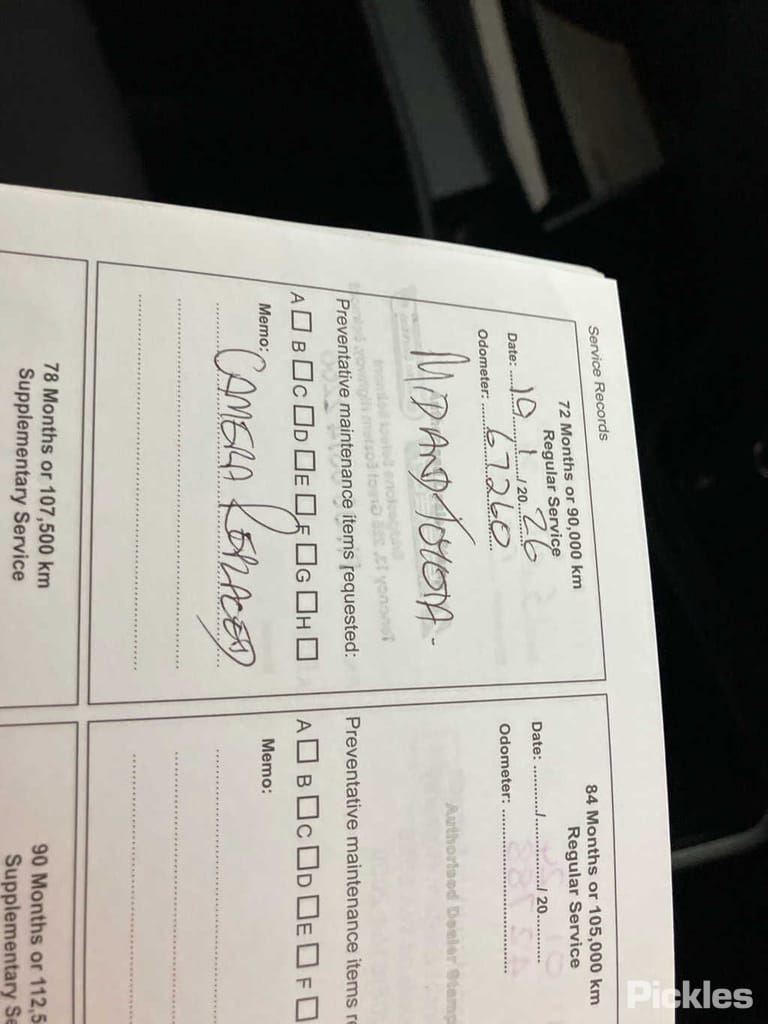 Service Records
72 Months or 90,000 km
Regular Service
Date: 19 / 1 / 20 26
Odometer: 67260
MIDLAND TOYOTA -
Preventative maintenance items requested:
A B C D E F G H
Memo:
CAMERA REPLACED
84 Months or 105,000 km
Regular Service
Date: / / 20
Odometer:
Authorised Dealer Stamp
Preventative maintenance items re
A B C D E F
Memo:
78 Months or 107,500 km
Supplementary Service
90 Months or 112,5
Supplementary Se
Pickles